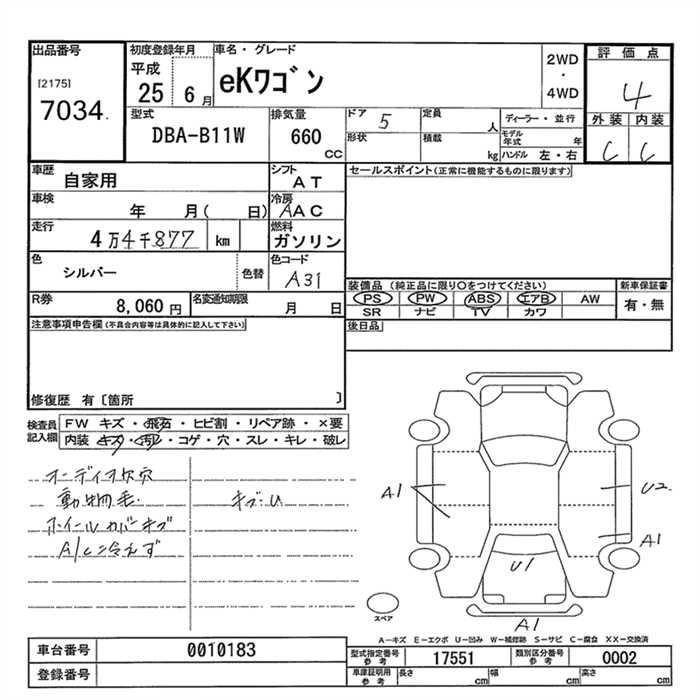 出品番号
[2175]
7034.
初度登録年月
平成
25 6月
車名・グレード
eKワゴン
2WD
・
4WD
評価点
4
外装 内装
C C
型式
DBA-B11W
排気量
660
CC
ドア 5
形状
定員
人
積載
kg
ディーラー・並行
モデル年式 年
ハンドル 左・右
車歴
自家用
シフト
AT
車検
年 月( 日)
冷房
AAC
走行
4万4千877 km
燃料
ガソリン
色
シルバー
色替
色コード
A31
R券
8,060円
名変通知期限
月 日
セールスポイント(正常に機能するものに限ります)
装備品(純正品に限り○をつけてください)
新車保証書
PS PW ABS エアB AW
有・無
SR ナビ TV カワ
後日品
注意事項申告欄(不具合内容等は具体的に記入して下さい)
修復歴 有〔箇所 〕
検査員記入欄
FW キズ・飛石・ヒビ割・リペア跡・×要
内装 キズ・汚れ・コゲ・穴・スレ・キレ・破レ
オーディオ欠穴
動物毛.
キズ・U
ホイールカバーキズ
A/C冷えず
A1
U2
A1
U1
A1
スペア
A-キズ E-エクボ U-凹み W-補修跡 S-サビ C-腐食 XX-交換済
車台番号
0010183
登録番号
型式指定番号参考
17551
類別区分番号参考
0002
車庫証明用参考
長さ cm
幅 cm
高さ cm